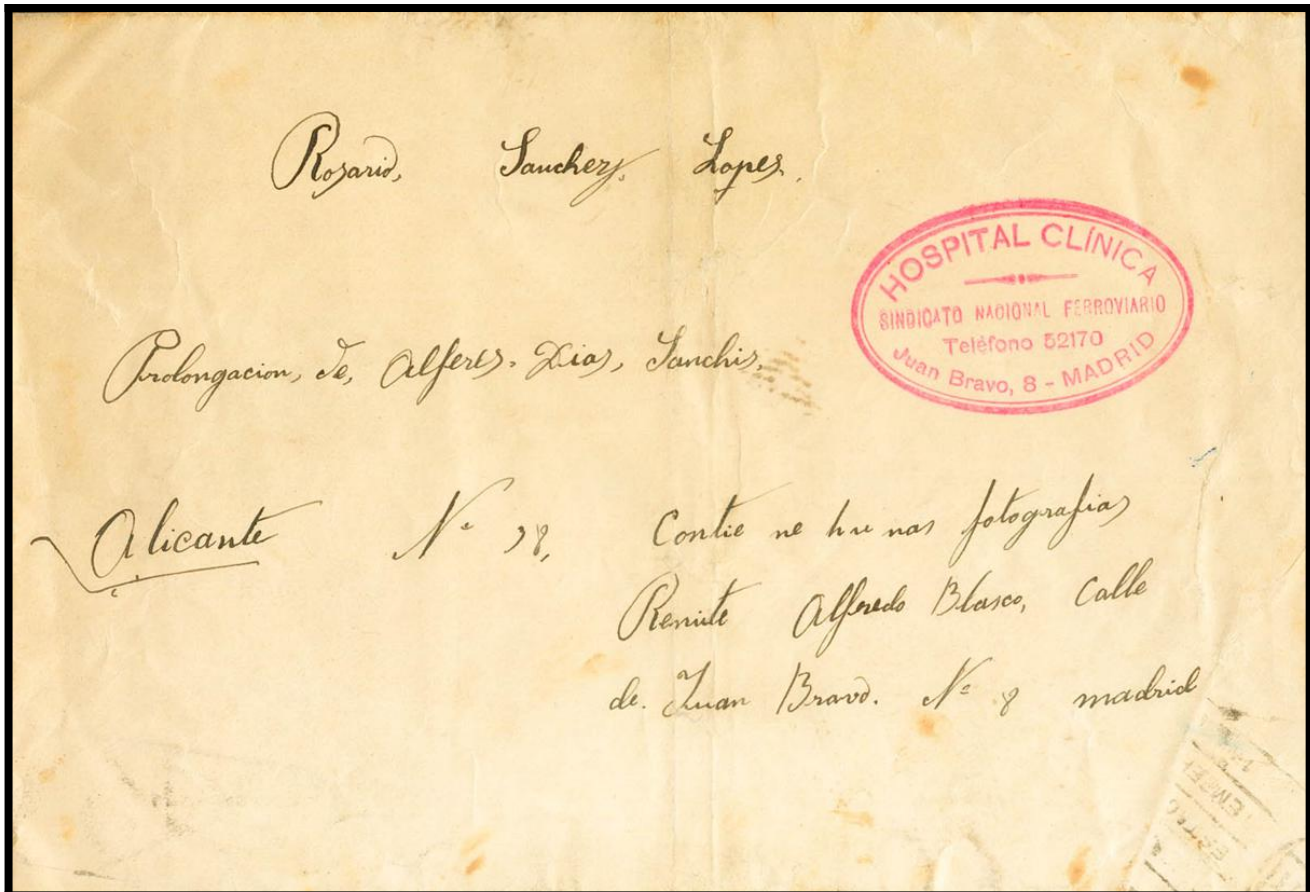 Rosario, Sanchez, Lopes.
HOSPITAL CLÍNICA
SINDICATO NACIONAL FERROVIARIO
Teléfono 52170
Juan Bravo, 8 - MADRID
Prolongacion, de, Alferes. Dias, Sanchis.
Alicante Nº 38,
Contie ne hu nas fotografias
Remite Alfredo Blasco, Calle
de. Juan Bravo. Nº 8 madrid